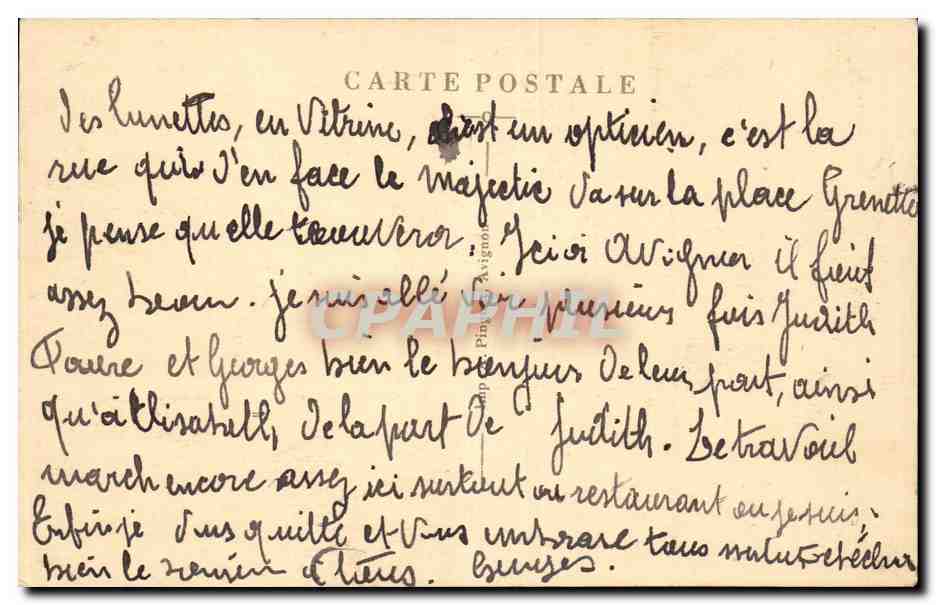 CARTE POSTALE
des lunettes, en vitrine, c'est un opticien, c'est la
rue qui d'en face le majectic va sur la place Grenette
je pense qu'elle trouvera. Ici a Avignon il fait
assez beau. je suis allé voir plusieurs fois Judith
Faure et Georges bien le bonjour de leur part, ainsi
qu'à Elisabeth, de la part de Judith. Le travail
march encore assez ici surtout au restaurant ou je suis,
Enfin je vous quitte et vous embrasse tous
bien le
Imp Avignon
CPAPHIL